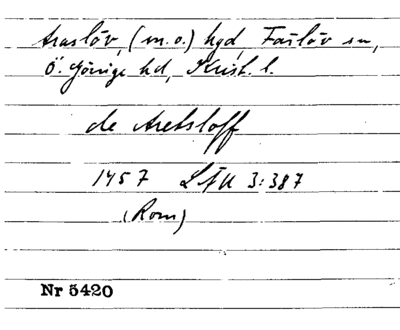 Araslöv, (m.o.) hgd, Färlöv sn,
Ö. Göinge hd, Krist. l.
de Aretsloff
1457 LfU 3:387
(Rom)
Nr 5420